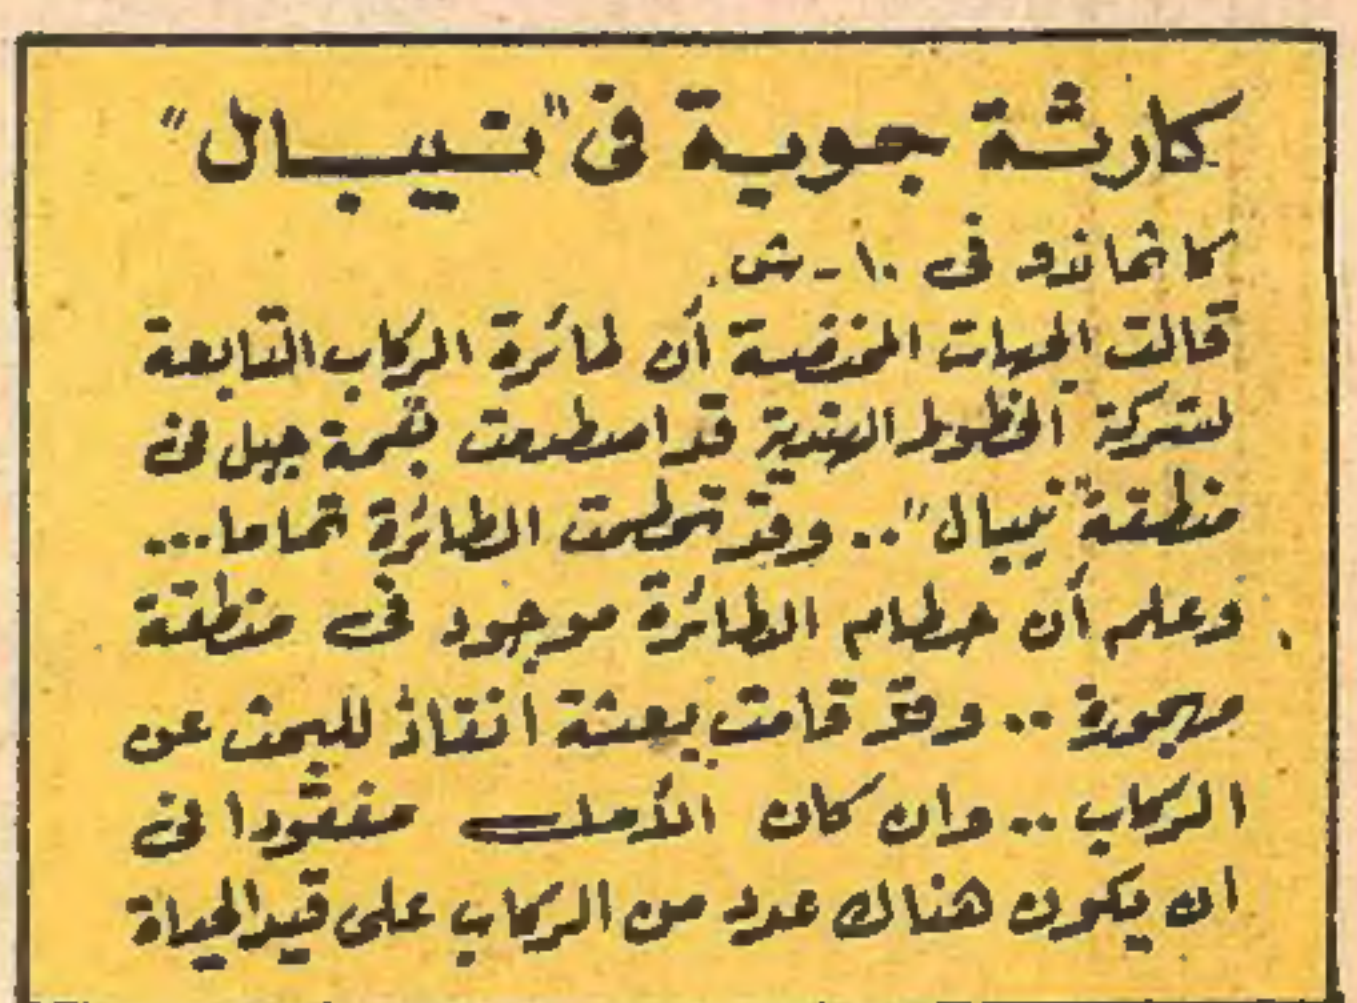 كارثة جوية فى "نيبال"
كاثماندو فى ١٠ - ش.
قالت الجهات المختصة أن طائرة الركاب التابعة
لشركة الخطوط الهندية قد اصطدمت بقمة جبل فى
منطقة "نيبال" .. وقد تحطمت الطائرة تماما ...
وعلم أن حطام الطائرة موجود فى منطقة
مهجورة .. وقد قامت بعثة انقاذ للبحث عن
الركاب .. وان كان الأمل مفقودا فى
ان يكون هناك عدد من الركاب على قيد الحياة